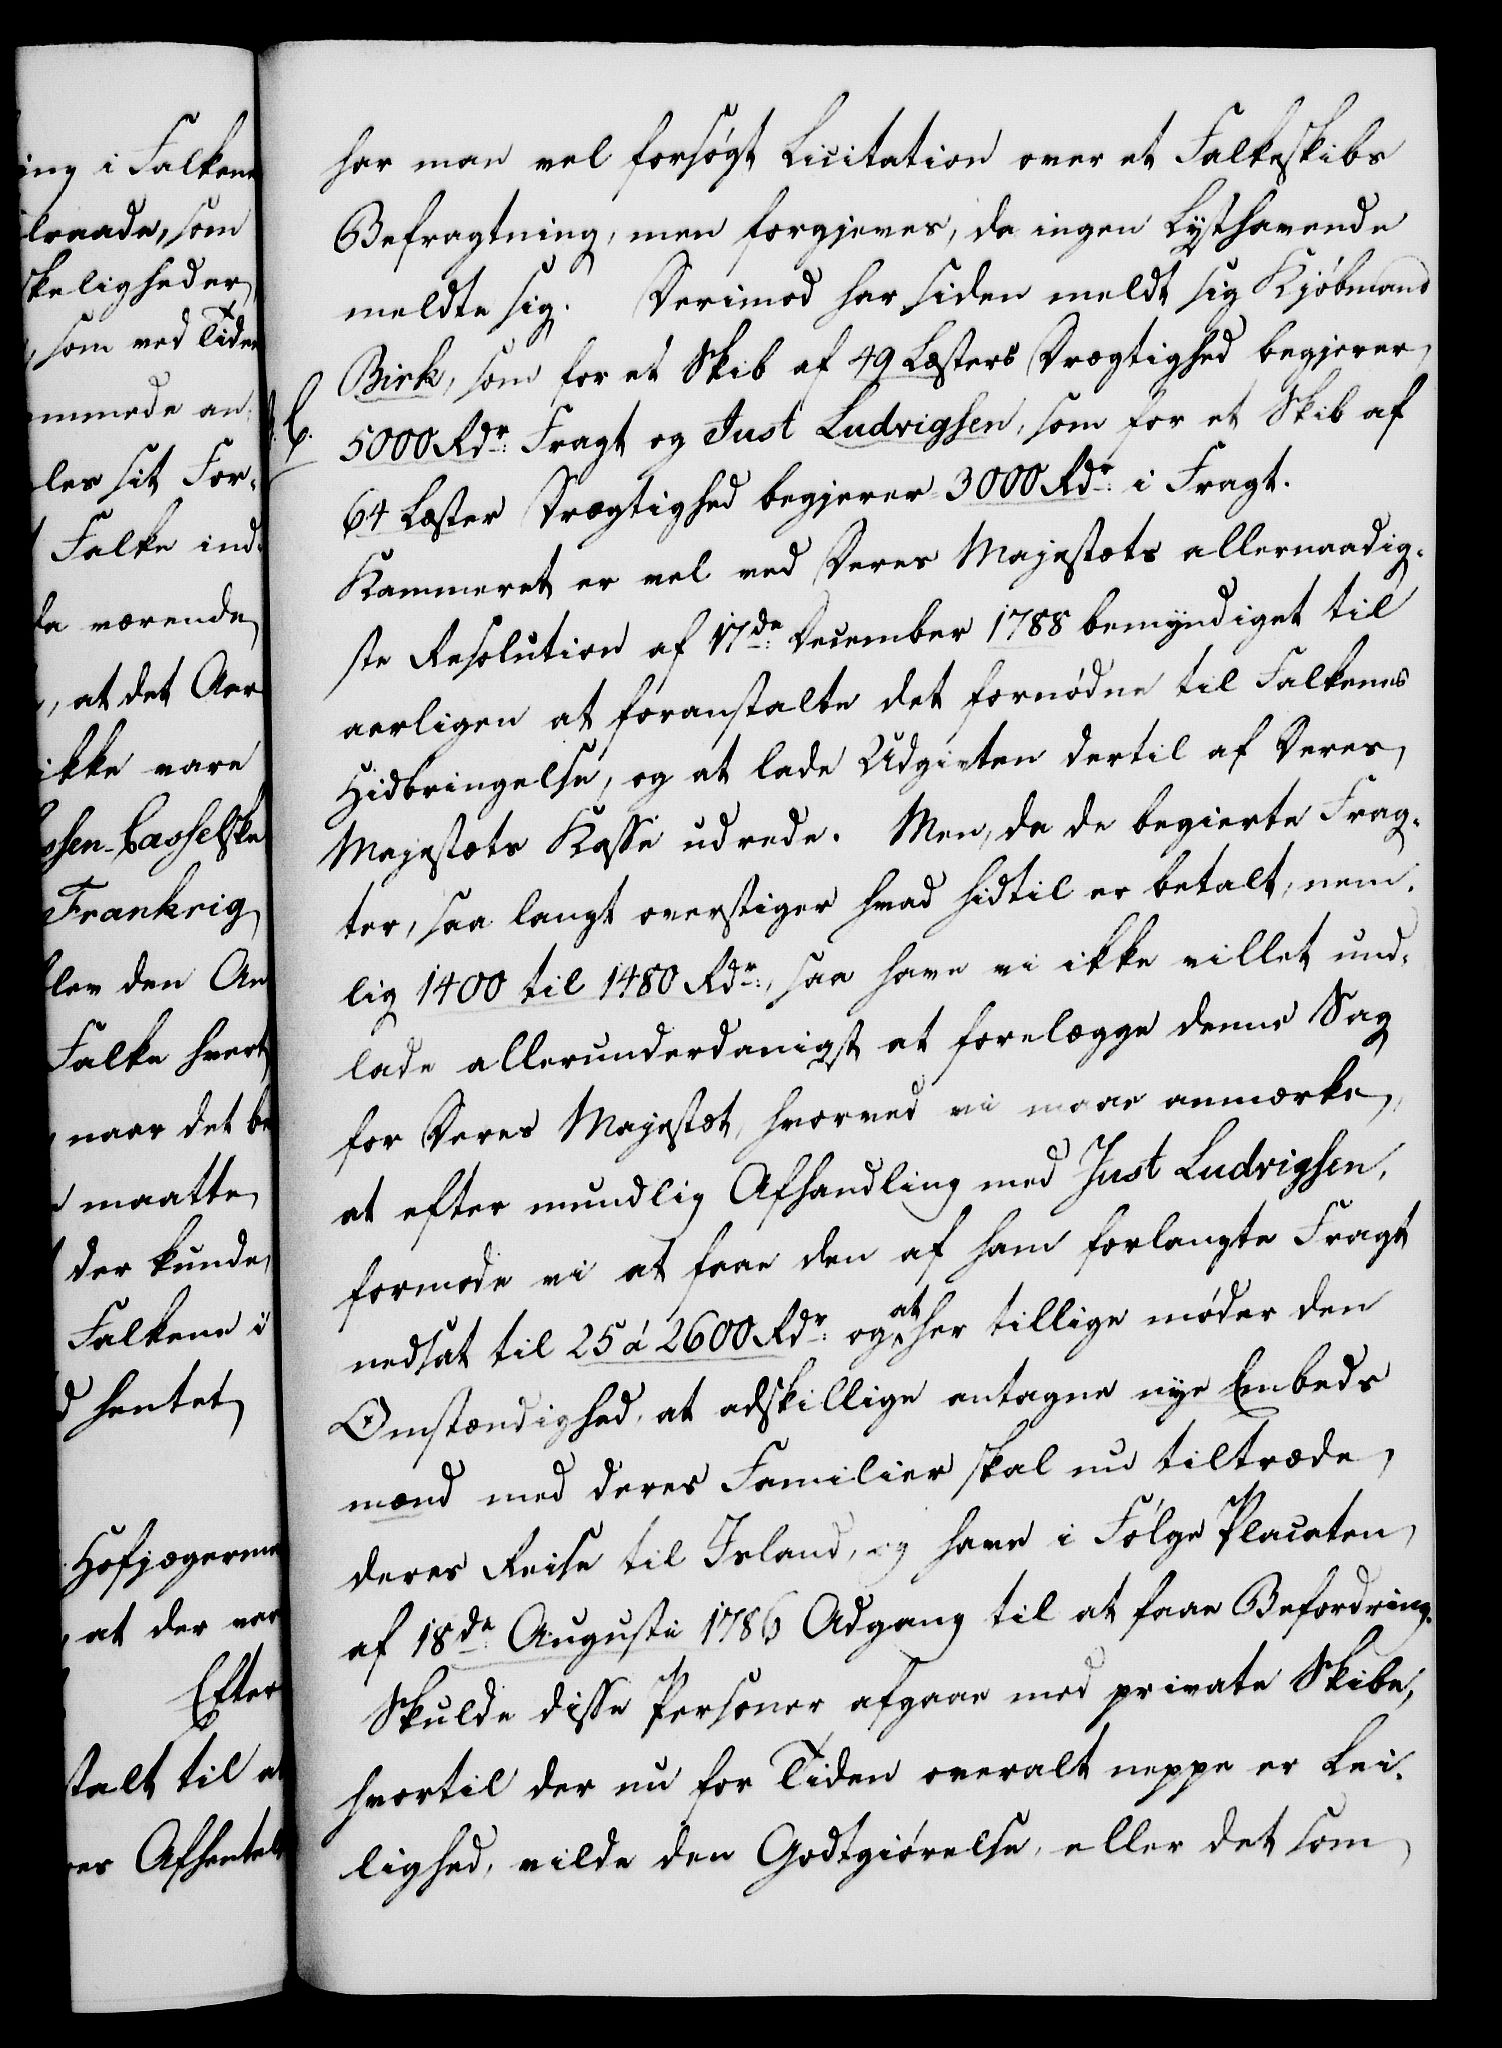 ing i Falkene
lraade, som
skeligheder,
som ved Tiden
ommede an-
les sit For-
Falke ind-
da værende
, at det Aar
ikke vare
ssen-Casselske
Frankrig
blev den An
Falke hvert
, naar det be
maatte,
der kunde,
Falkene i
hentet,
Hofjægerme
, at der var
Efter
stalt til at
res Afhentel
har man vel forsøgt Licitation over et Falkeskibs
Befragtning, men forgjeves, da ingen Lysthavende
meldte sig. Derimod har siden meldt sig Kjøbmand
Birk, som for et Skib af 49 Læsters Drægtighed begjerer,
5000 Rdr: Fragt og Just Ludvigsen, som for et Skib af
64 Læster Drægtighed begjerer 3000 Rdr: i Fragt.
Kammeret er vel ved Deres Majestæts allernaadig-
ste Resolution af 17de: December 1788 bemyndiget til
aarligen at foranstalte det fornødne til Falkenes
Hidbringelse, og at lade Udgivten dertil af Deres,
Majestæts Kasse udrede. Men, da de begierte Frag-
ter, saa langt overstiger hvad hidtil er betalt, nem-
lig 1400 til 1480 Rdr:, saa have vi ikke villet und-
lade allerunderdanigst at forelægge denne Sag
for Deres Majestæt, hvorved vi maae anmærke,
at efter mundlig Afhandling med Just Ludvigsen,
formode vi at faae den af ham forlangte Fragt
nedsat til 25 á 2600 Rdr: og at her tillige møder den
Omstændighed, at adskillige antagne nye Embeds
mænd med deres Familier skal nu tiltræde,
deres Reise til Island, og have i Følge Placaten,
af 18de: Augusti 1786 Adgang til at faae Befordring.
Skulde disse Personer afgaae med private Skibe,
hvortil der nu for Tiden overalt neppe er Lei-
lighed, vilde den Godtgiørelse, eller det som